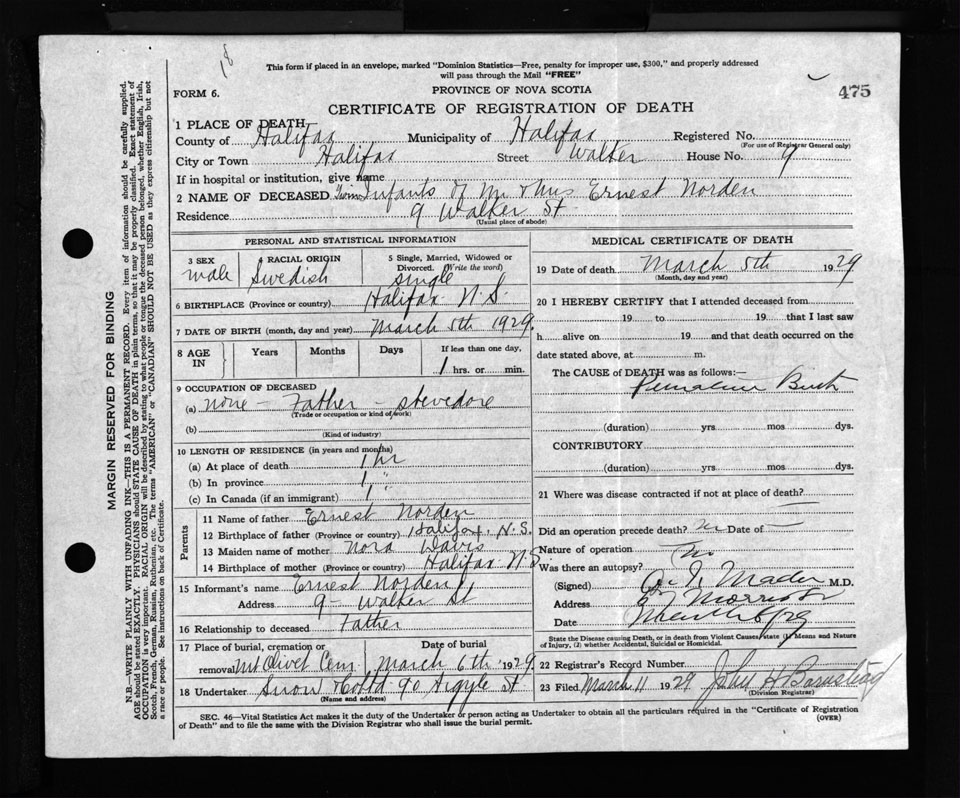 18
This form if placed in an envelope, marked "Dominion Statistics—Free, penalty for improper use, $300," and properly addressed
will pass through the Mail "FREE"
475
FORM 6.
PROVINCE OF NOVA SCOTIA
CERTIFICATE OF REGISTRATION OF DEATH
1 PLACE OF DEATH
County of Halifax Municipality of Halifax Registered No.
(For use of Registrar General only)
City or Town Halifax Street Walker House No. 9
If in hospital or institution, give name
2 NAME OF DECEASED Twin Infants of Mr & Mrs Ernest Norden
Residence 9 Walker St
(Usual place of abode)
PERSONAL AND STATISTICAL INFORMATION
3 SEX 4 RACIAL ORIGIN 5 Single, Married, Widowed or Divorced. (Write the word)
male Swedish single
6 BIRTHPLACE (Province or country) Halifax N.S.
7 DATE OF BIRTH (month, day and year) March 5th 1929.
8 AGE IN Years Months Days If less than one day,
1 hrs. or min.
9 OCCUPATION OF DECEASED
(a) none - Father - stevedore
(Trade or occupation or kind of work)
(b)
(Kind of industry)
10 LENGTH OF RESIDENCE (in years and months)
(a) At place of death 1 hr
(b) In province 1 "
(c) In Canada (if an immigrant) 1 "
Parents
11 Name of father Ernest Norden
12 Birthplace of father (Province or country) Halifax, N.S.
13 Maiden name of mother Nora Davis
14 Birthplace of mother (Province or country) Halifax N.S.
15 Informant's name Ernest Norden
Address 9 - Walker St
16 Relationship to deceased Father
17 Place of burial, cremation or Date of burial
removal Mt Olivet Cem. March 6th 1929
18 Undertaker Snow Co Ltd 90 Argyle St
(Name and address)
MEDICAL CERTIFICATE OF DEATH
19 Date of death March 5th 1929
(Month, day and year)
20 I HEREBY CERTIFY that I attended deceased from
19 to 19 that I last saw
h alive on 19 and that death occurred on the
date stated above, at m.
The CAUSE of DEATH was as follows:—
Premature Birth
(duration) yrs. mos. dys.
CONTRIBUTORY
(duration) yrs. mos. dys.
21 Where was disease contracted if not at place of death? —
Did an operation precede death? no Date of —
Nature of operation
Was there an autopsy? no
(Signed) Mader M.D.
Address Morris St
Date March 6/29
State the Disease causing Death, or in death from Violent Causes, state (1) Means and Nature
of Injury, (2) whether Accidental, Suicidal or Homicidal.
22 Registrar's Record Number
23 Filed March 11 1929 John H Barnstead
(Division Registrar)
SEC. 46—Vital Statistics Act makes it the duty of the Undertaker or person acting as Undertaker to obtain all the particulars required in the "Certificate of Registration
of Death" and to file the same with the Division Registrar who shall issue the burial permit.
(OVER)
MARGIN RESERVED FOR BINDING
N.B.—WRITE PLAINLY WITH UNFADING INK—THIS IS A PERMANENT RECORD. Every item of information should be carefully supplied.
AGE should be stated EXACTLY. PHYSICIANS should STATE CAUSE OF DEATH in plain terms, so that it may be properly classified. Exact statement of
OCCUPATION is very important. RACIAL ORIGIN will be described by stating to what people or tongue the deceased person belonged, whether English, Irish,
Scotch, French, German, Russian, Ruthenian, etc. The terms "AMERICAN" or "CANADIAN" SHOULD NOT BE USED as they express citizenship but not
a race or people. See instructions on back of Certificate.